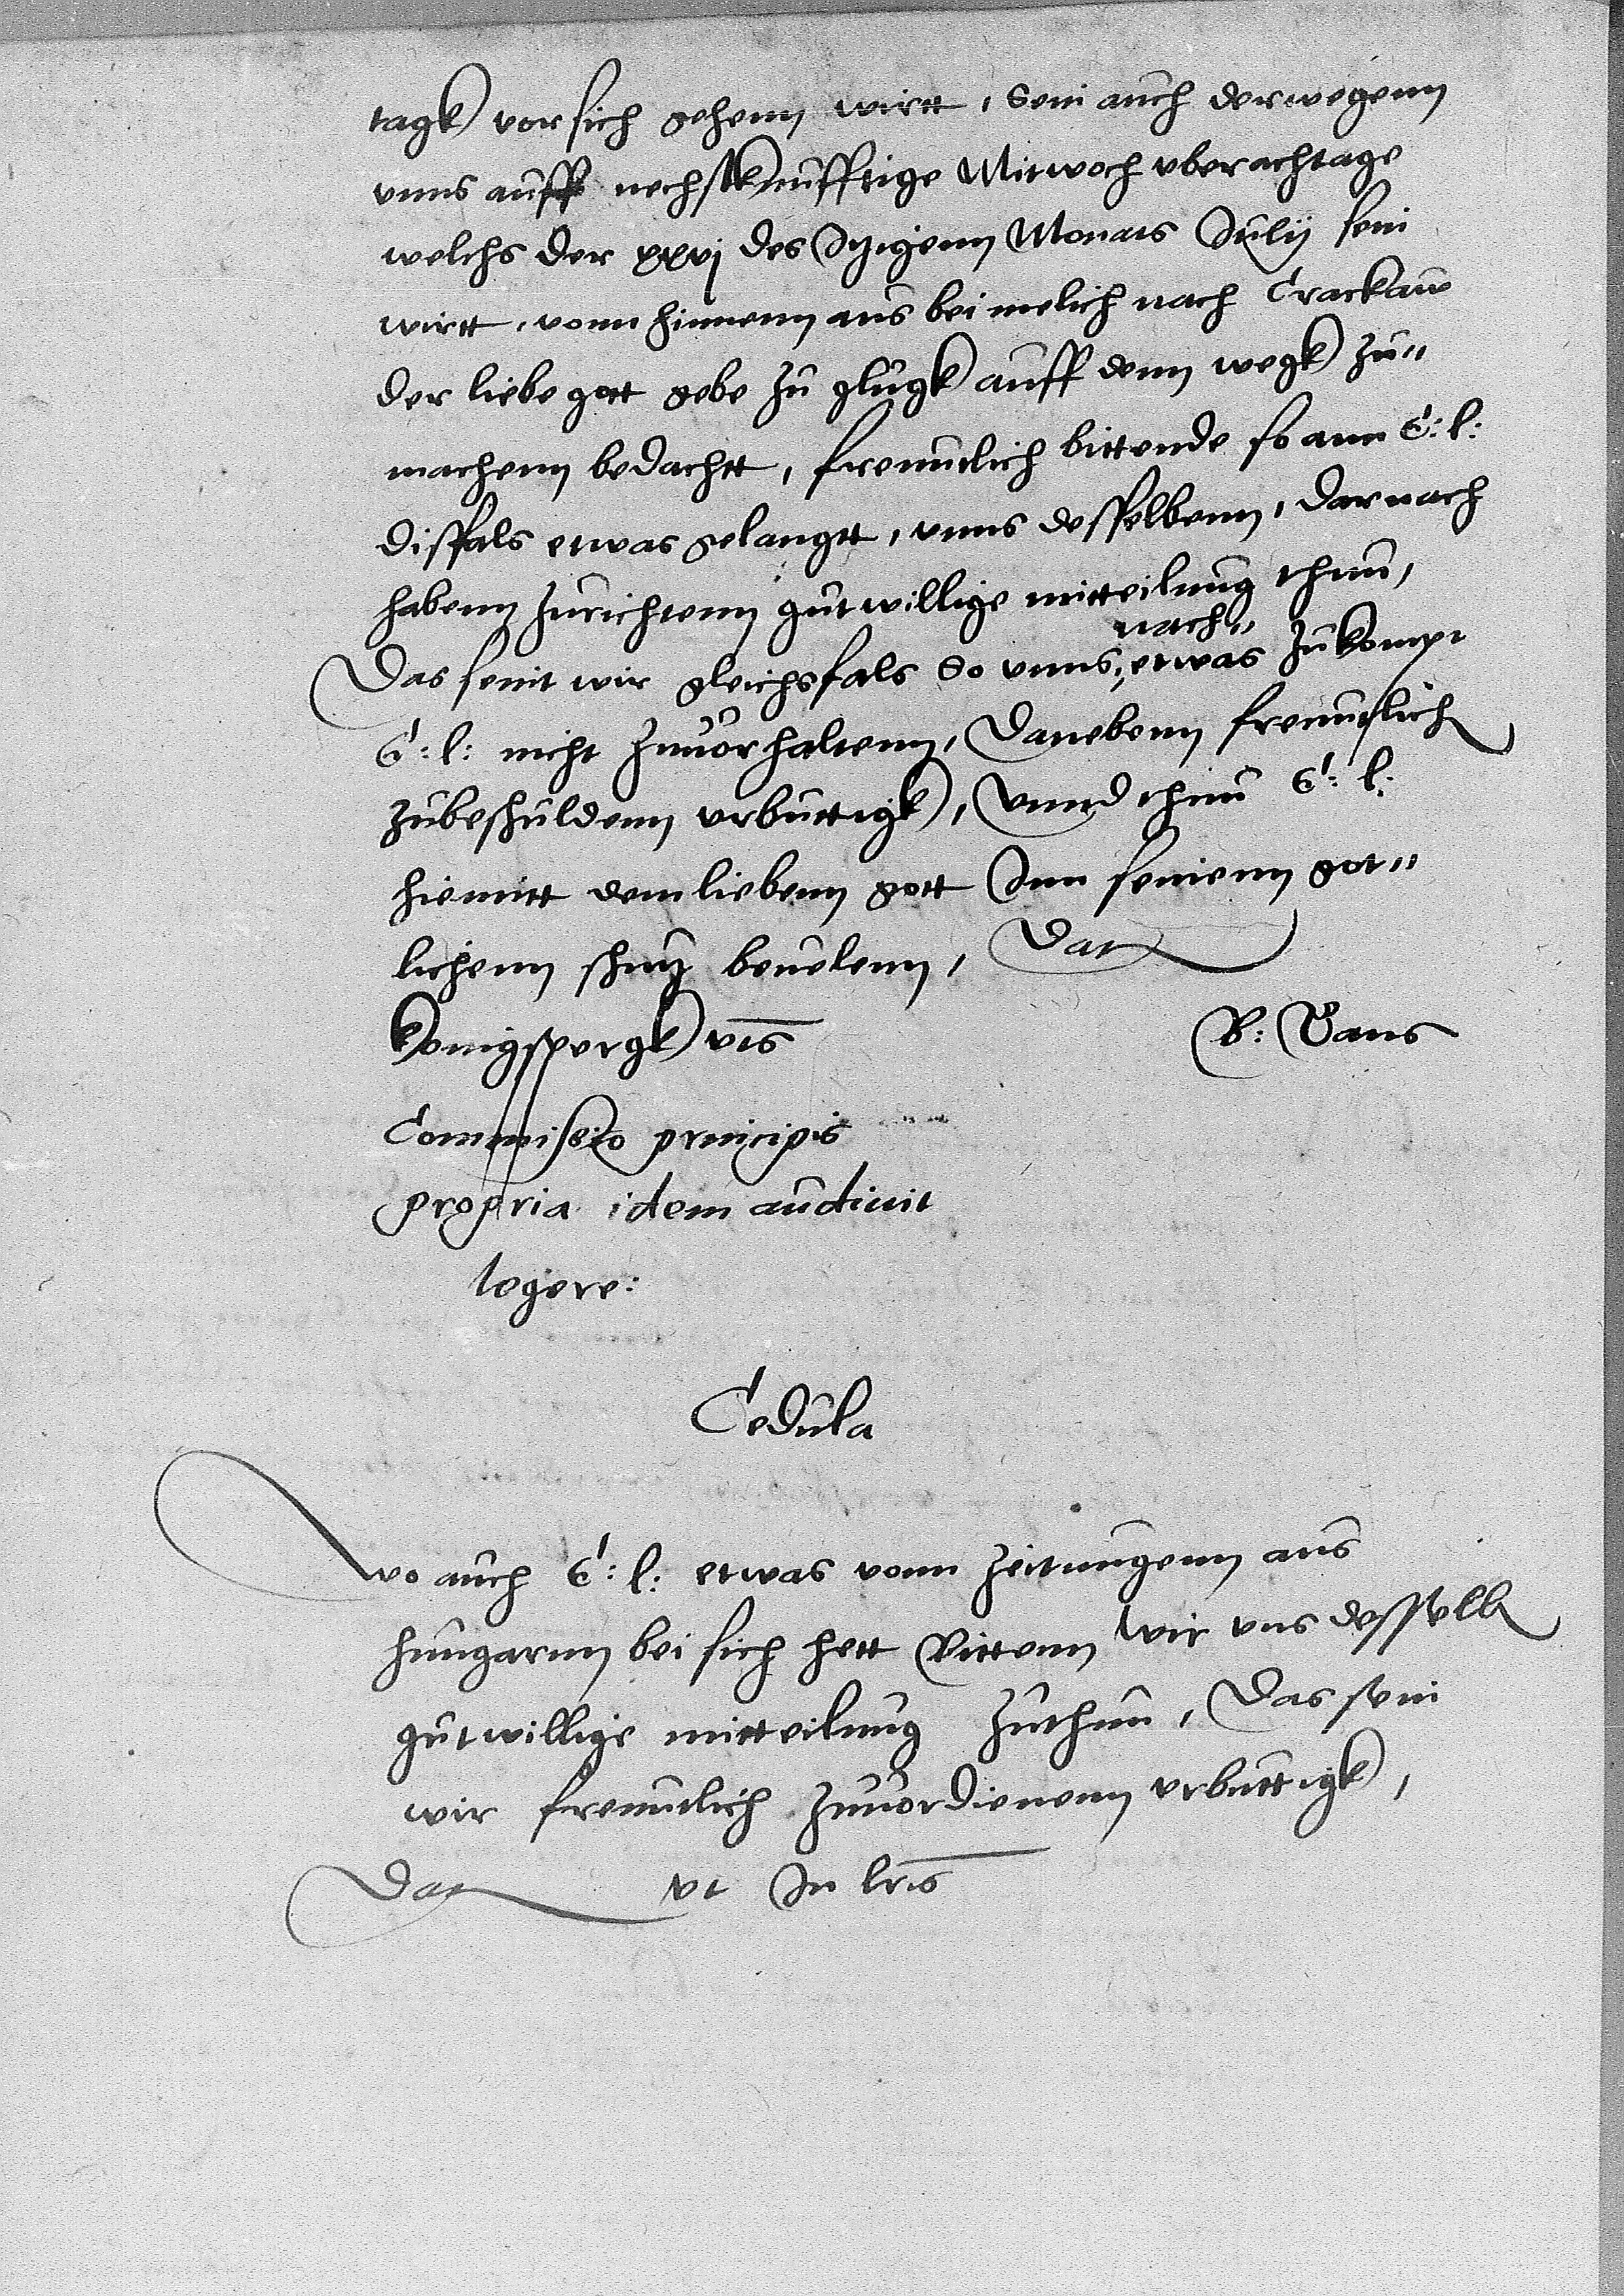 tagk vor sich gehenn wirtt, Sein auch derwegenn
vnns auff nechstkunfftige Mitwoch vber achtage
welchs der xxvj des Itzigenn Monats Julij sein
wirtt, vonn hinnenn aus beimelich nach Crackaw
der liebe gott gebe zu glugk auff denn wegk zu"
machenn bedachtt, freuntlich bittende so ann E: l:
disfals etwas gelangtt, vnns desselbenn, darnach
habenn zurichtenn gutwillige mitteilung thun,
nach"
Das seint wir gleichsfals So vnns, etwas zukompt
E: l: nicht zuuorhaltenn, Danebenn freuntlich
zubeschuldenn vrbuttigk, Vnnd thun E: l:
hiemitt dem liebenn gott Inn seinenn got"
lichenn schutz beuelenn, Dat
Konigspergk vts
B: Gans
Commissio principis
propria idem audiuit
legere:
Cedula
Wo auch E: l: etwas vonn zeitungenn aus
hungarnn bei sich hett Bittenn wir vns desselb
gutwillige mitteilung zuthun, Das sein
wir freuntlich zuuordienenn vrbuttigk,
Dat vt In lris